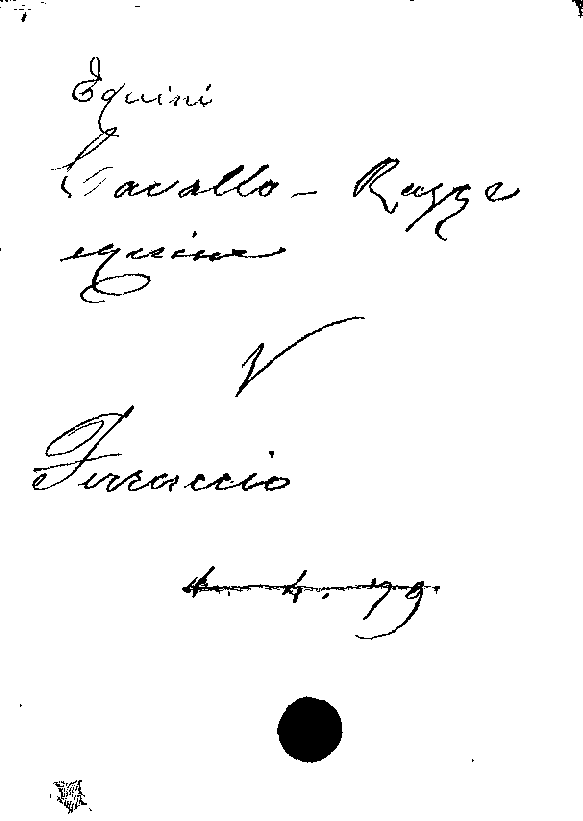 Equini
Cavallo - Razze
equine
V
Ferraccio
4. 4. 79.